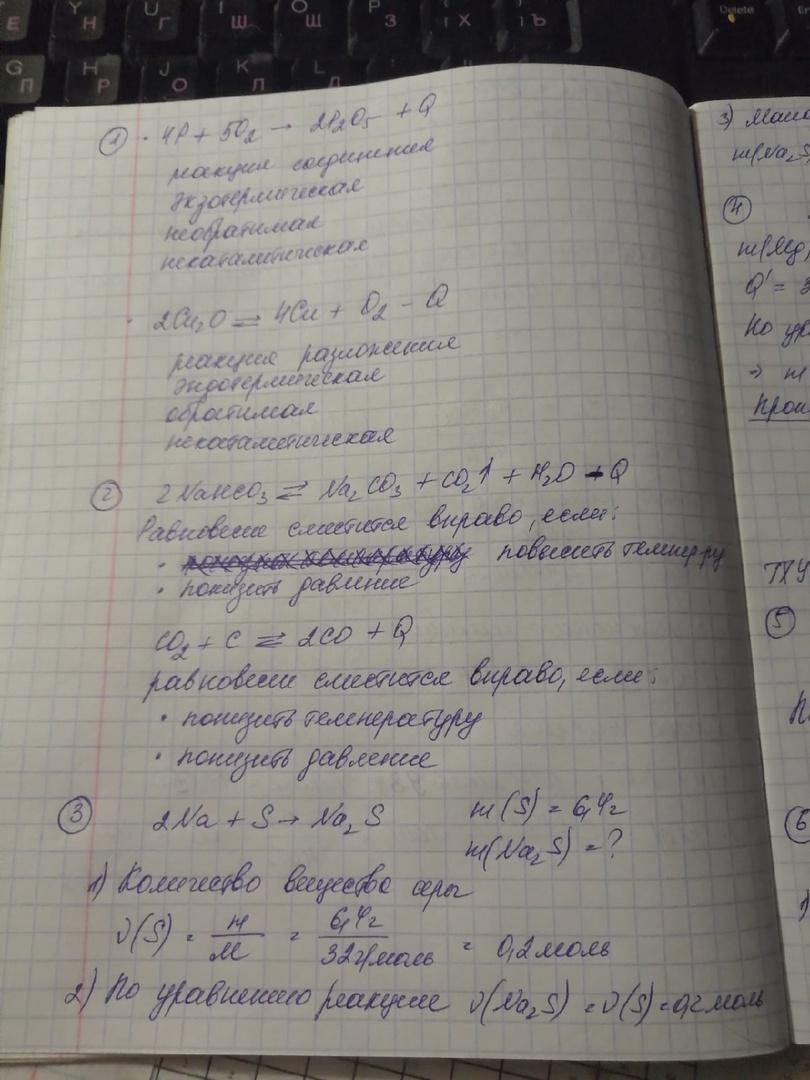 1 · 4P + 5O₂ → 2P₂O₅ + Q
реакция соединения
экзотермическая
необратимая
некаталитическая
· 2Cu₂O ⇌ 4Cu + O₂ - Q
реакция разложения
эндотермическая
обратимая
некаталитическая
2 2NaHCO₃ ⇌ Na₂CO₃ + CO₂↑ + H₂O - Q
Равновесие сместится вправо, если:
· повысить темпер-ру
· понизить давление
CO₂ + C ⇌ 2CO + Q
равновесие сместится вправо, если:
· понизить температуру
· понизить давление
3 2Na + S → Na₂S m(S) = 6,4г
m(Na₂S) = ?
1) Количество вещества серы
ν(S) = m/M = 6,4г/32г/моль = 0,2 моль
2) По уравнению реакции ν(Na₂S) = ν(S) = 0,2 моль
3)
m(Na₂S
4
m(Mg
Q' =
По ур
⇒ m
ТХУ
5
6
1)
Delete
Е Н Г Ш Щ З Х Ъ
Y U I O P
G H J K L
П Р О Л